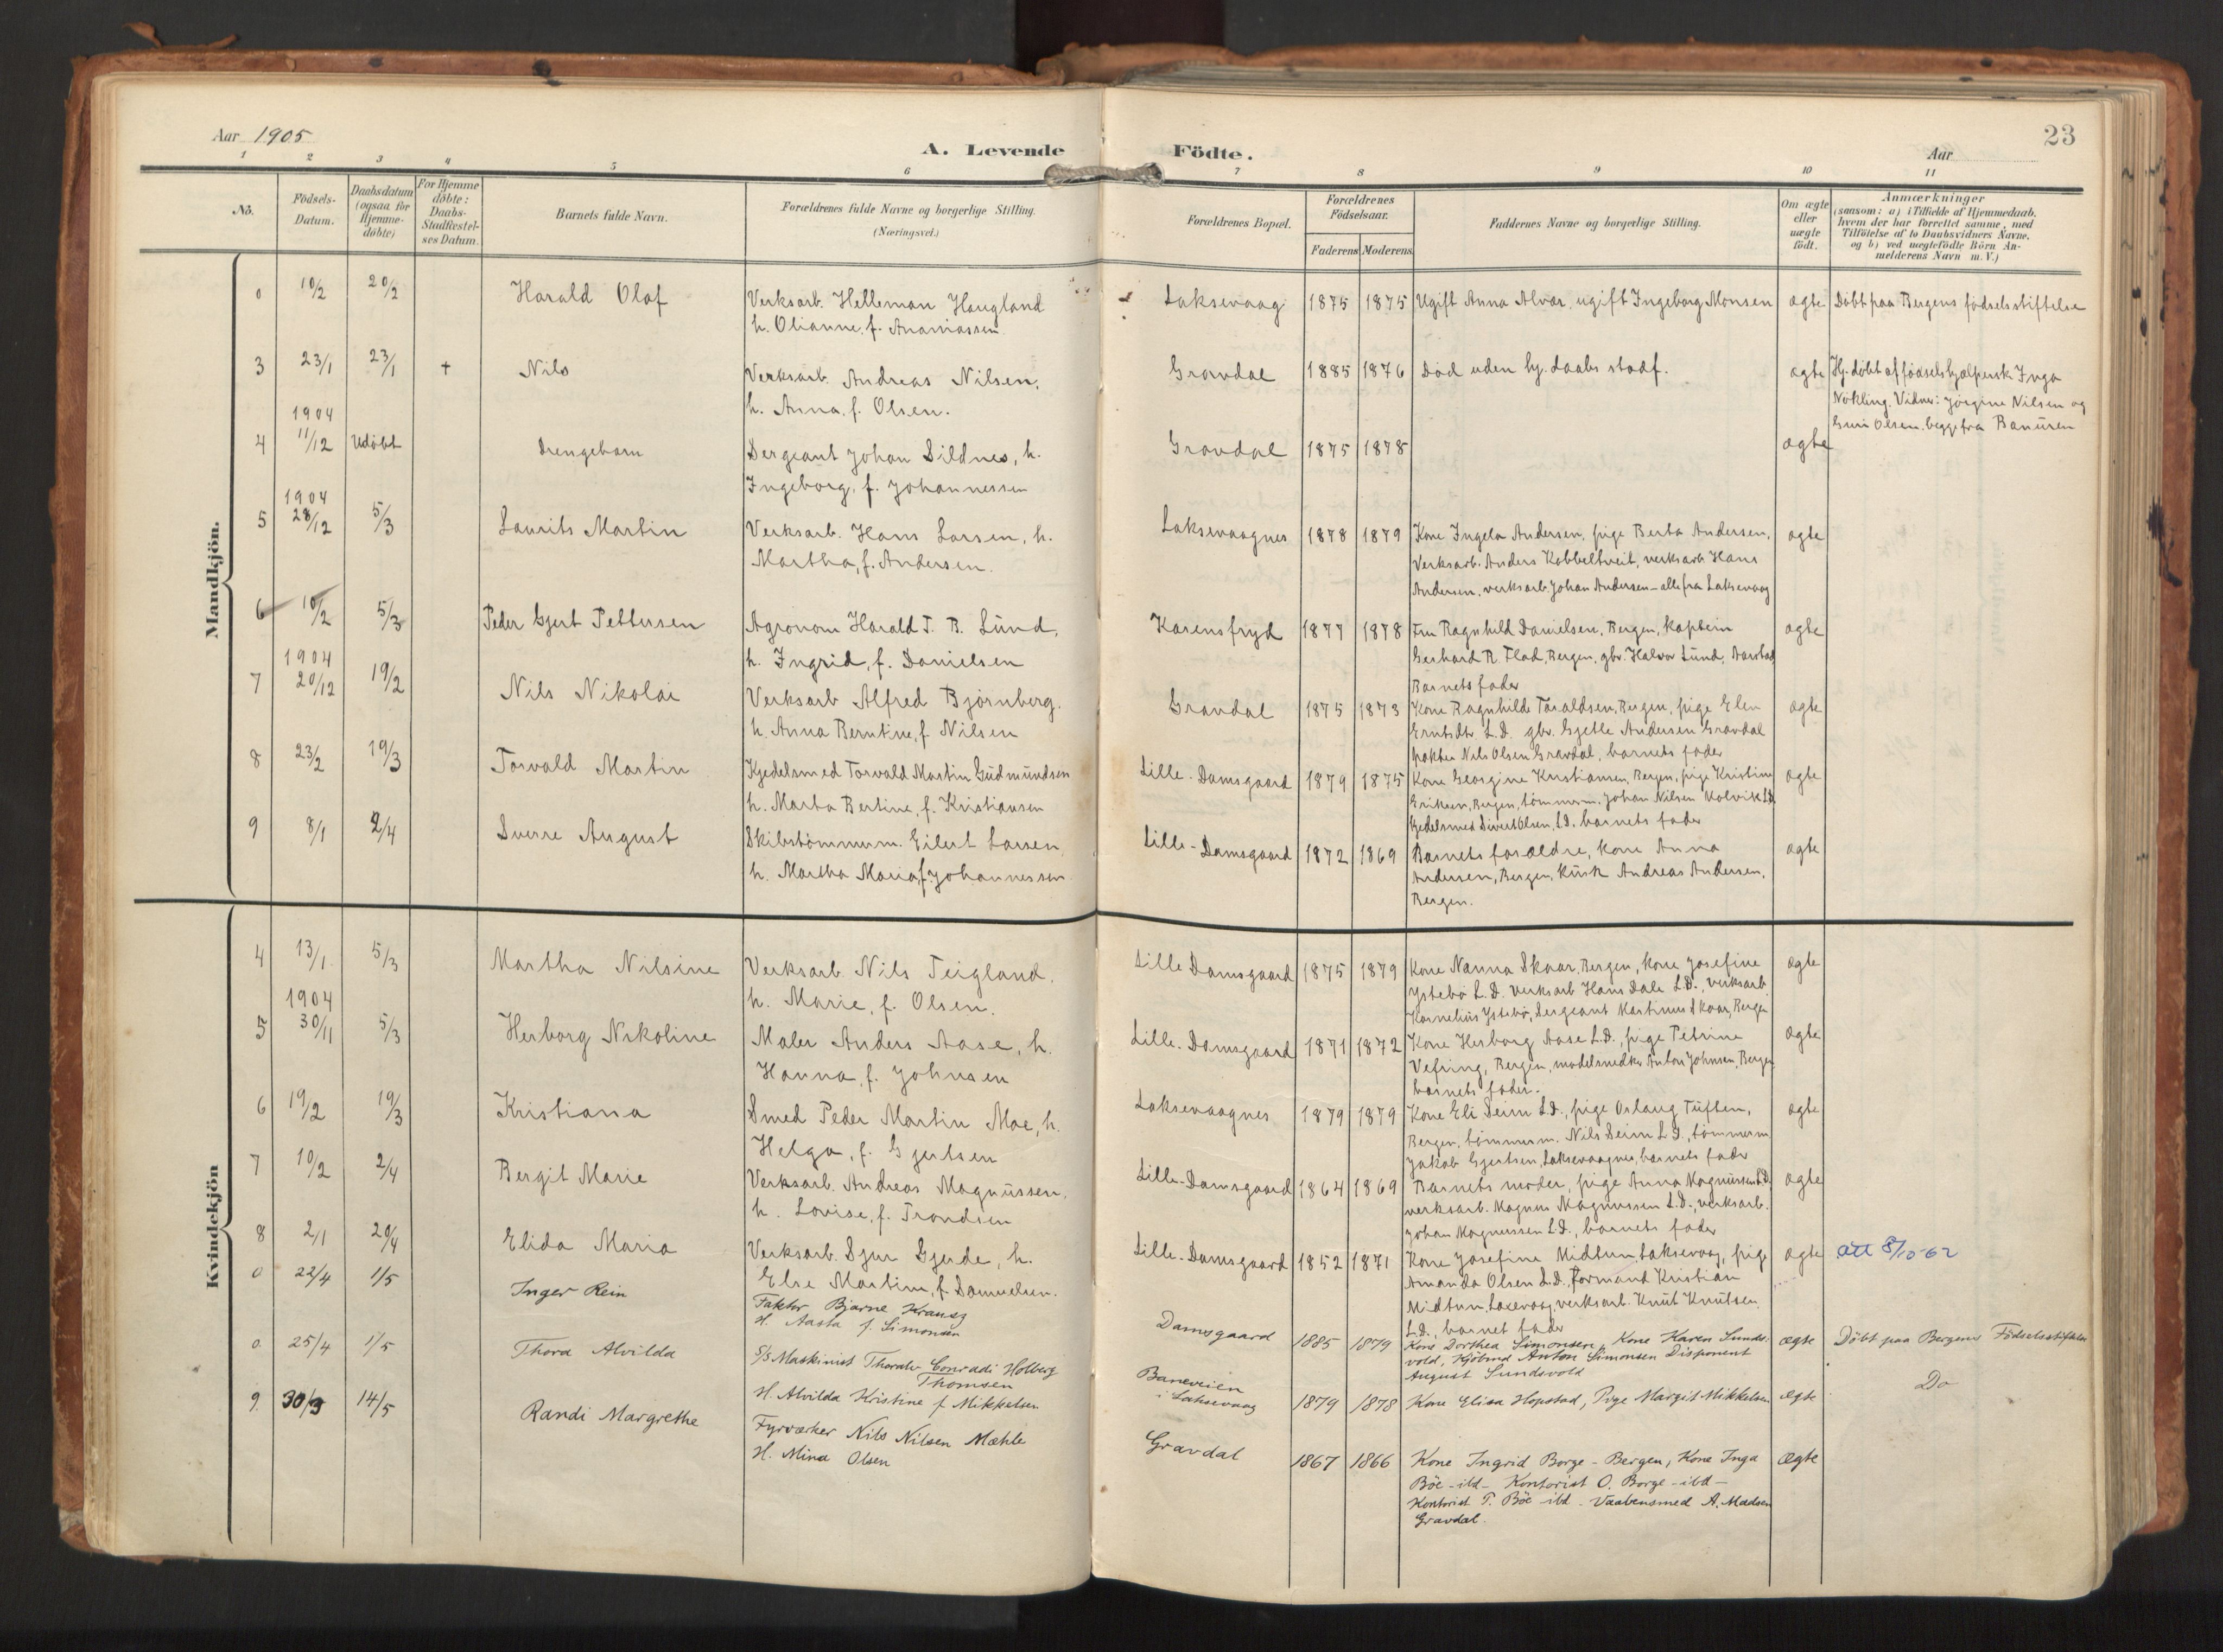 23
Aar 1905
A. Levende
Födte.
Aar
1 2 3 4 5 6 7 8 9 10 11
Nö.
Födsels-
Datum.
Daabsdatum
(ogsaa for
Hjemme-
döbte)
For Hjemme
döbte:
Daabs-
Stadfæstel-
ses Datum.
Barnets fulde Navn.
Forældrenes fulde Navne og borgerlige Stilling.
(Næringsvei.)
Forældrenes Bopæl.
Forældrenes
Födselsaar.
Faderens Moderens
Faddernes Navne og borgerlige Stilling.
Om ægte
eller
uægte
födt.
Anmærkninger
(saasom: a) i Tilfælde af Hjemmedaab,
hvem der har forrettet samme, med
Tilföielse af to Daabsvidners Navne,
og b) ved uægtefödte Börn An-
melderens Navn m. V.)
Mandkjön.
0 10/2 20/2 Harald Olaf
Verksarb. Helleman Haugland
h. Olianne, f. Ananiassen.
Laksevaag 1875 1875 Ugift Anna Alvær, ugift Ingeborg Monsen ægte Döbt paa Bergens födselsstiftelse
3 23/1 23/1 + Nils
Verksarb. Andreas Nilsen,
h. Anna, f. Olsen.
Gravdal 1885 1876 Död uden hj. daabs stadf. ægte
Hj. döbt af födselshjælpersk Inga
Nökling. Vidner: Jörgine Nilsen og
Guri Olsen, begge fra Banüren
4 1904 11/12 Udöbt Drengebarn
Sergeant Johan Sildnes, h.
Ingeborg, f. Johannessen
Gravdal 1875 1878 ægte
5 1904 28/12 5/3 Laurits Martin
Verksarb. Hans Larsen, h.
Martha, f. Andersen.
Laksevaagnes 1878 1879 Kone Ingela Andersen, pige Berta Andersen,
Verksarb. Anders Kobbeltveit, verksarb Hans
Andersen, verksarb. Johan Andersen – alle fra Laksevaag
ægte
6 10/2 5/3 Peder Gjert Pettersen
Agronom Harald T. R. Lünd,
h. Ingrid, f. Danielsen
Karensfryd 1877 1878 Fru Ragnhild Danielsen, Bergen, kaptein
Gerhard R. Flad, Bergen, gbr. Halvor Lünd,
Barnets fader
ægte
7 1904 20/12 19/2 Nils Nikolai
Verksarb Alfred Björnberg.
h. Anna Berntine, f. Nilsen
Gravdal 1875 1873 Kone Ragnhilde Taraldsen, Bergen, pige Elen
L.D. gbr. Gjetle Andersen Gravdal
Nils Olsen Gravdal, barnets fader
ægte
8 23/2 19/3 Torvald Martin
Kjedelsmed Torvald Martin Güdmündsen
h. Marta Bertine, f. Kristiansen
Lille-Damsgaard 1879 1875 Kone Georgine Kristiansen, Bergen, pige Kristine
Eriksen, Bergen, tömmerm. Johan Nilsen Molvik L.D.
Kjedelsmed Sivert Olsen, L.D. barnets fader
ægte
9 8/1 2/4 Sverre August
Skibstömmerm. Eilert Larsen,
h. Martha Maria, f. Johannessen
Lille-Damsgaard 1872 1869 Barnets forældre, kone Anna
Andersen, Bergen, küsk Andreas Andersen,
Bergen.
ægte
Kvindekjön
4 13/1 5/3 Martha Nilsine
Verksarb. Nils Teigland,
h. Marie, f. Olsen.
Lille Damsgaard 1875 1879 Kone Nanna Skaar, Bergen, kone Josefine
Ystebö L.D. verksarb Hans Dale L.D., verksarb.
Kornelius Ystebö, Sergeant Martinus Skaar, Bergen
ægte
5 1904 30/11 5/3 Herborg Nikoline
Maler Anders Aase, h.
Hanna, f. Johnsen
Lille-Damsgaard 1871 1872 Kone Herborg Aase L.D., pige Petrine
Vefring, Bergen, modelsnedker Anton Johnsen, Bergen
barnets fader.
ægte
6 19/2 19/3 Kristiana
Smed Peder Martin Moe, h.
Helga, f. Gjertsen
Laksevaagnes 1879 1879 Kone Eli Seim L.D., pige Oslaug Tüften,
Bergen, tömmerm. Nils Seim L.D., tömmerm
Jakob Gjertsen, Laksevaagnes, barnets fader
ægte
7 10/2 2/4 Bergit Marie
Verksarb. Andreas Magnüssen,
h. Lovise, f. Trondsen
Lille-Damsgaard 1864 1869 Barnets moder, pige Anna Magnüssen L.D.
verksarb. Magnus Magnussen L.D., verksarb.
Johan Magnussen L.D., barnets fader
ægte
8 2/1 20/4 Elida Maria
Verksarb. Sjur Gjerde, h.
Else Martine, f. Samuelsen.
Lille-Damsgaard 1852 1871 Kone Josefine Midtun, Laksevaag, pige
Amanda Olsen L.D., Formand Kristian
Midtun, Laxevaag, verksarb. Knut Knutsen,
L.D., barnet fader
ægte att 8/10-62
0 22/4 1/5 Inger Rein
Faktor Bjarne Krausz
H. Aasta f. Simonsen
Damsgaard 1885 1879 Kone Dorthea Simonsen, Kone Karen Sunds-
vold, Kjöbmd Anton Simonsen Disponent
August Sundsvold
ægte Döbt paa Bergens Födselsstiftelse
0 25/4 1/5 Thora Alvilda
S/S Maskinist Thoralv Conradi Holberg
Thomsen
H. Alvilda Kristine f Mikkelsen
Baneveien
i Laksevaag 1879 1878 Kone Elisa Hopstad, Pige Margit Mikkelsen ægte Do
9. 30/3 14/5 Randi Margrethe
Fyrværker Nils Nilsen Mæhle
H. Mina Olsen
Gravdal 1867 1866 Kone Ingrid Borge – Bergen, Kone Inga
Böe – ibd – Kontorist O. Borge – ibd –
Kontorist T. Böe ibd. Vaabensmed A. Madsen
Gravdal.
Ægte